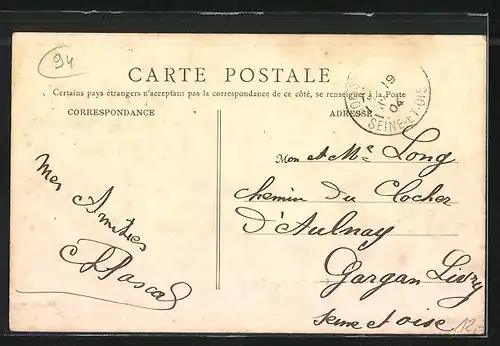 94
CARTE POSTALE
Certains pays étrangers n'acceptant pas la correspondance de ce côté, se renseigner à la Poste
CORRESPONDANCE
ADRESSE
19
04
SEINE-ET-OISE
Mon et Me Long
chemin du Clocher
d'Aulnay
Gargan Livry
Seine et oise
Mes
Amitiés
Pascal
12,-